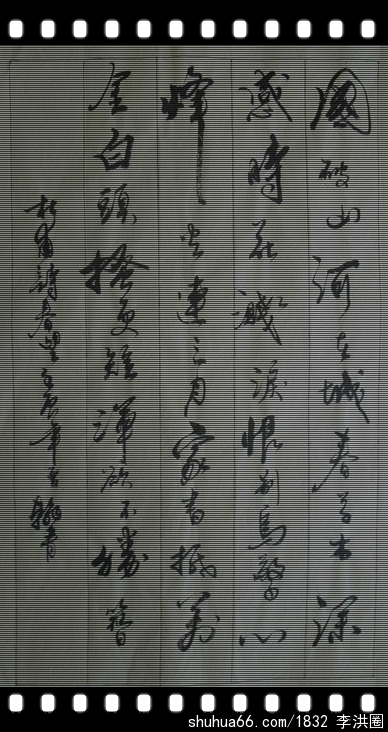 國破山河在城春草木深
感時花濺淚恨別鳥驚心
烽火連三月家書抵萬
金白頭搔更短渾欲不勝簪
杜甫詩春望壬辰年吉翰書
shuhua66.com/1832 李洪圈